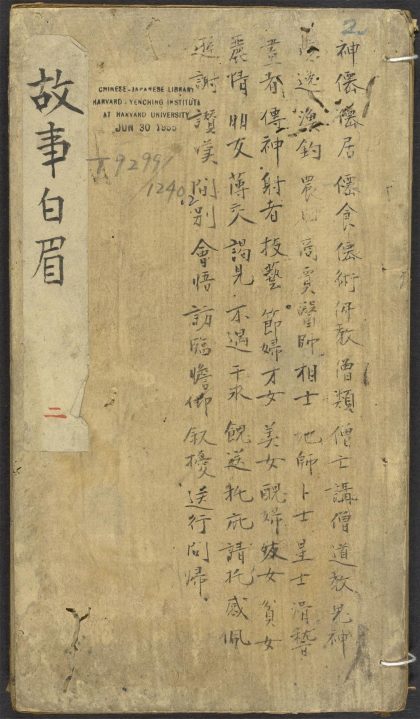 故事白眉
二
2
CHINESE-JAPANESE LIBRARY
HARVARD-YENCHING INSTITUTE
AT HARVARD UNIVERSITY
JUN 30 1955
T9299/
1240.2
神僊僊居僊食僊術佛教僧類僧士講僧道教鬼神
逸漁釣農田商賈醫師相士地師卜士星士滑稽
畫者傳神射者技藝節婦才女美女醜婦妓女貧女
農情朋友薄交謁見不遇干求餽送托庇請托感佩
遜謝讚嘆間別會悟訪臨瞻仰叙擾送行問歸